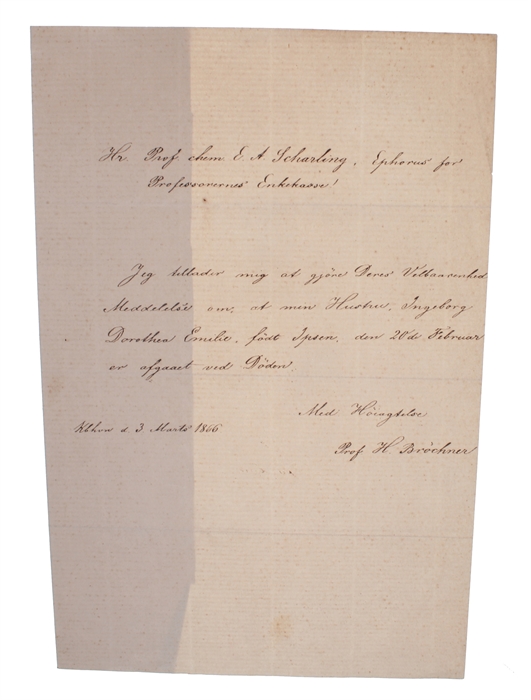 Hr. Prof chem. E. A. Scharling, Ephorus for
Professorernes Enkekasse!
Jeg tillader mig at gjöre Deres Velbaarenhed
Meddelelse om, at min Hustru, Ingeborg
Dorothea Emilie, født Ipsen, den 20de Februar
er afgaaet ved Döden.
Med Höiagtelse
Kbhvn d. 3 Marts 1866
Prof H. Bröchner